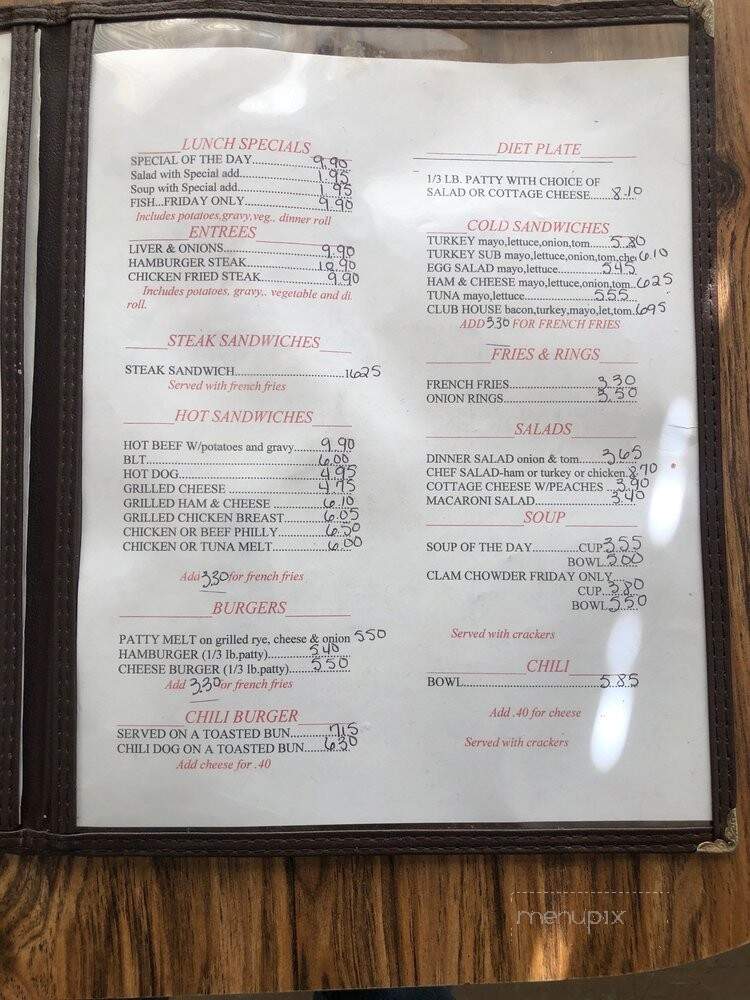 LUNCH SPECIALS
SPECIAL OF THE DAY..................9.90
Salad with Special add...................1.95
Soup with Special add...................1.95
FISH...FRIDAY ONLY...................9.90
Includes potatoes,gravy,veg.. dinner roll
ENTREES
LIVER & ONIONS.......................9.90
HAMBURGER STEAK...................10.90
CHICKEN FRIED STEAK...................9.90
Includes potatoes, gravy,. vegetable and di
roll.
STEAK SANDWICHES
STEAK SANDWICH.......................16.25
Served with french fries
HOT SANDWICHES
HOT BEEF W/potatoes and gravy.......9.90
BLT.......................................6.00
HOT DOG.................................4.95
GRILLED CHEESE .......................4.75
GRILLED HAM & CHEESE ..............6.10
GRILLED CHICKEN BREAST............6.05
CHICKEN OR BEEF PHILLY............6.50
CHICKEN OR TUNA MELT..............6.00
Add 3.30 for french fries
BURGERS
PATTY MELT on grilled rye, cheese & onion 5.50
HAMBURGER (1/3 lb.patty)..............5.40
CHEESE BURGER (1/3 lb.patty)..........5.50
Add 3.30 for french fries
CHILI BURGER
SERVED ON A TOASTED BUN..........7.15
CHILI DOG ON A TOASTED BUN.......6.30
Add cheese for .40
DIET PLATE
1/3 LB. PATTY WITH CHOICE OF
SALAD OR COTTAGE CHEESE......8.10
COLD SANDWICHES
TURKEY mayo,lettuce,onion,tom......5.80
TURKEY SUB mayo,lettuce,onion,tom,che 6.10
EGG SALAD mayo,lettuce..............5.45
HAM & CHEESE mayo,lettuce,onion,tom..6.25
TUNA mayo,lettuce....................5.55
CLUB HOUSE bacon,turkey,mayo,let,tom.6.95
ADD 3.30 FOR FRENCH FRIES
FRIES & RINGS
FRENCH FRIES........................3.30
ONION RINGS.........................3.50
SALADS
DINNER SALAD onion & tom.......3.65
CHEF SALAD-ham or turkey or chicken.8.70
COTTAGE CHEESE W/PEACHES ...3.90
MACARONI SALAD....................3.40
SOUP
SOUP OF THE DAY............CUP 3.55
BOWL 5.00
CLAM CHOWDER FRIDAY ONLY....
CUP...3.80
BOWL 5.50
Served with crackers
CHILI
BOWL...................................5.85
Add .40 for cheese
Served with crackers
menupix